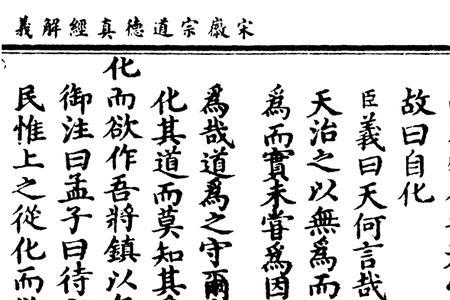 宋徽宗道德真經解義
故曰自化
臣義曰天何言哉
天治之以無爲而
爲而實未嘗爲因
爲哉道爲之守爾
化其道而莫知其
化而欲作吾將鎮以
御注曰孟子曰待
民惟上之從化而